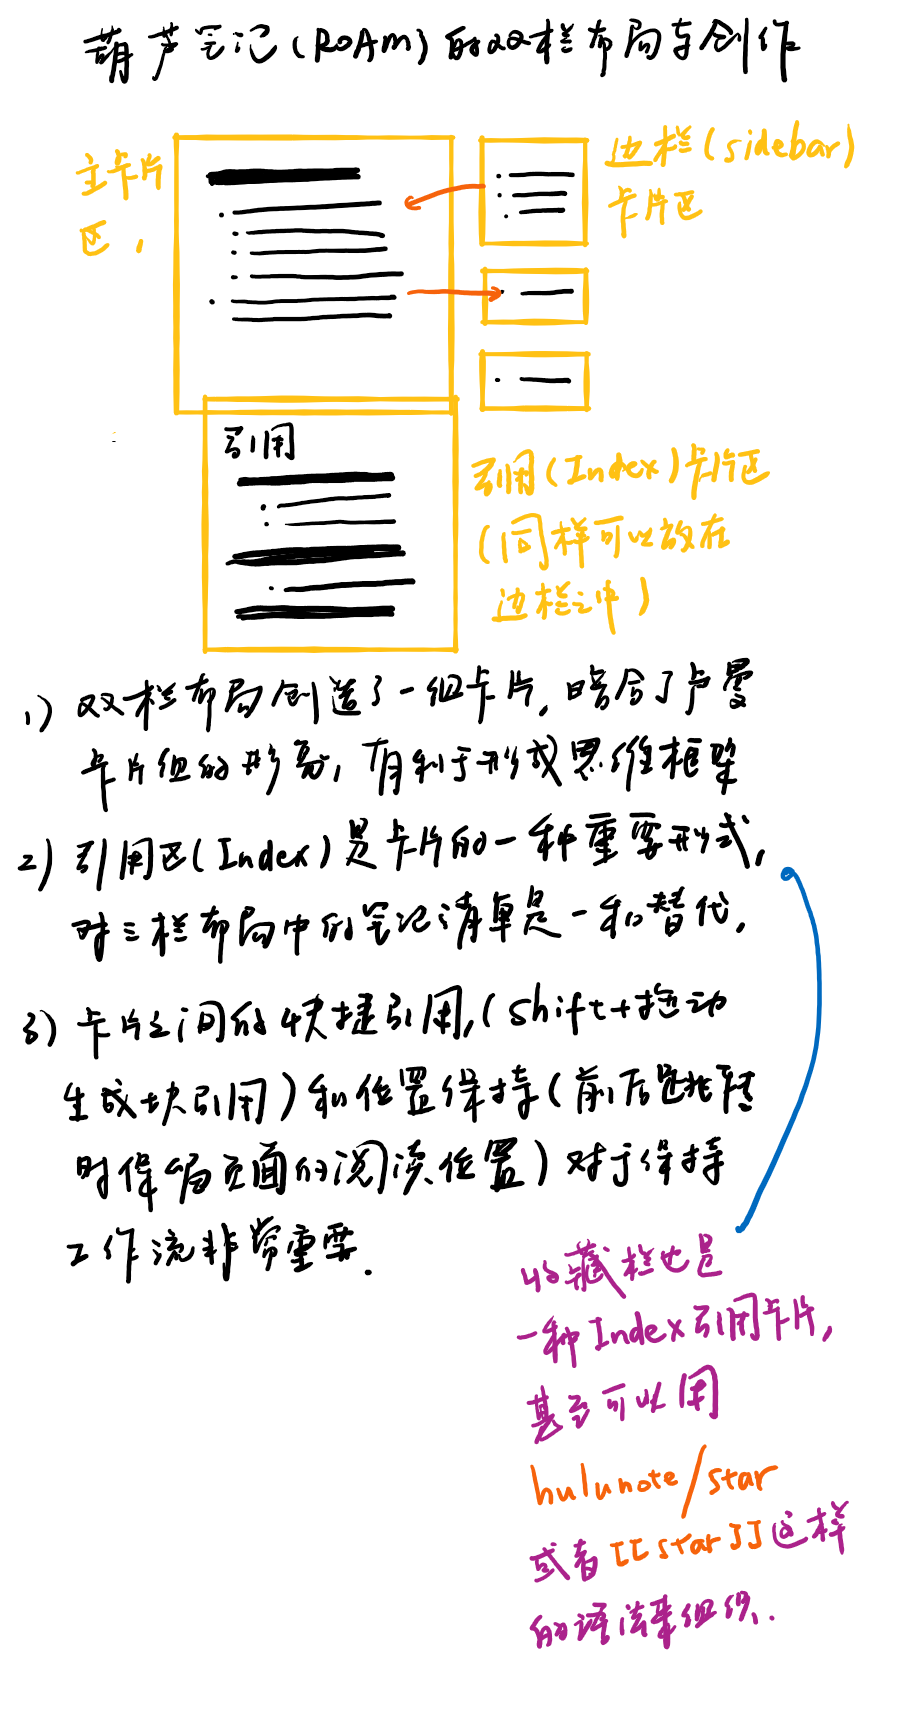 葫芦笔记(ROAm)的双栏布局与创作
主卡片
区,
边栏(sidebar)
卡片区
引用
引用(Index)卡片区
(同样可以放在
边栏之中)
1) 双栏布局创造了一组卡片,暗合了卢曼
卡片组的形象,有利于形成思维框架
2) 引用区(Index)是卡片的一种重要形式,
对三栏布局中的笔记清单是一种替代,
3) 卡片之间的快捷引用,(shift+拖动
生成块引用)和位置保持(前后跳转
时保留页面的阅读位置)对于保持
工作流非常重要.
收藏栏也是
一种Index引用卡片,
甚至可以用
hulunote/star
或者[[star]]这样
的语法来组织.